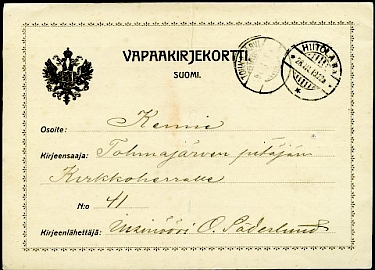 VAPAAKIRJEKORTTI.
SUOMI.
HIITOLA
Osoite: Kemie
Kirjeensaaja: Tohmajärven pitäjän
Kirkkoherralle
N:o 41
Kirjeenlähettäjä: Insinööri O. Söderlund